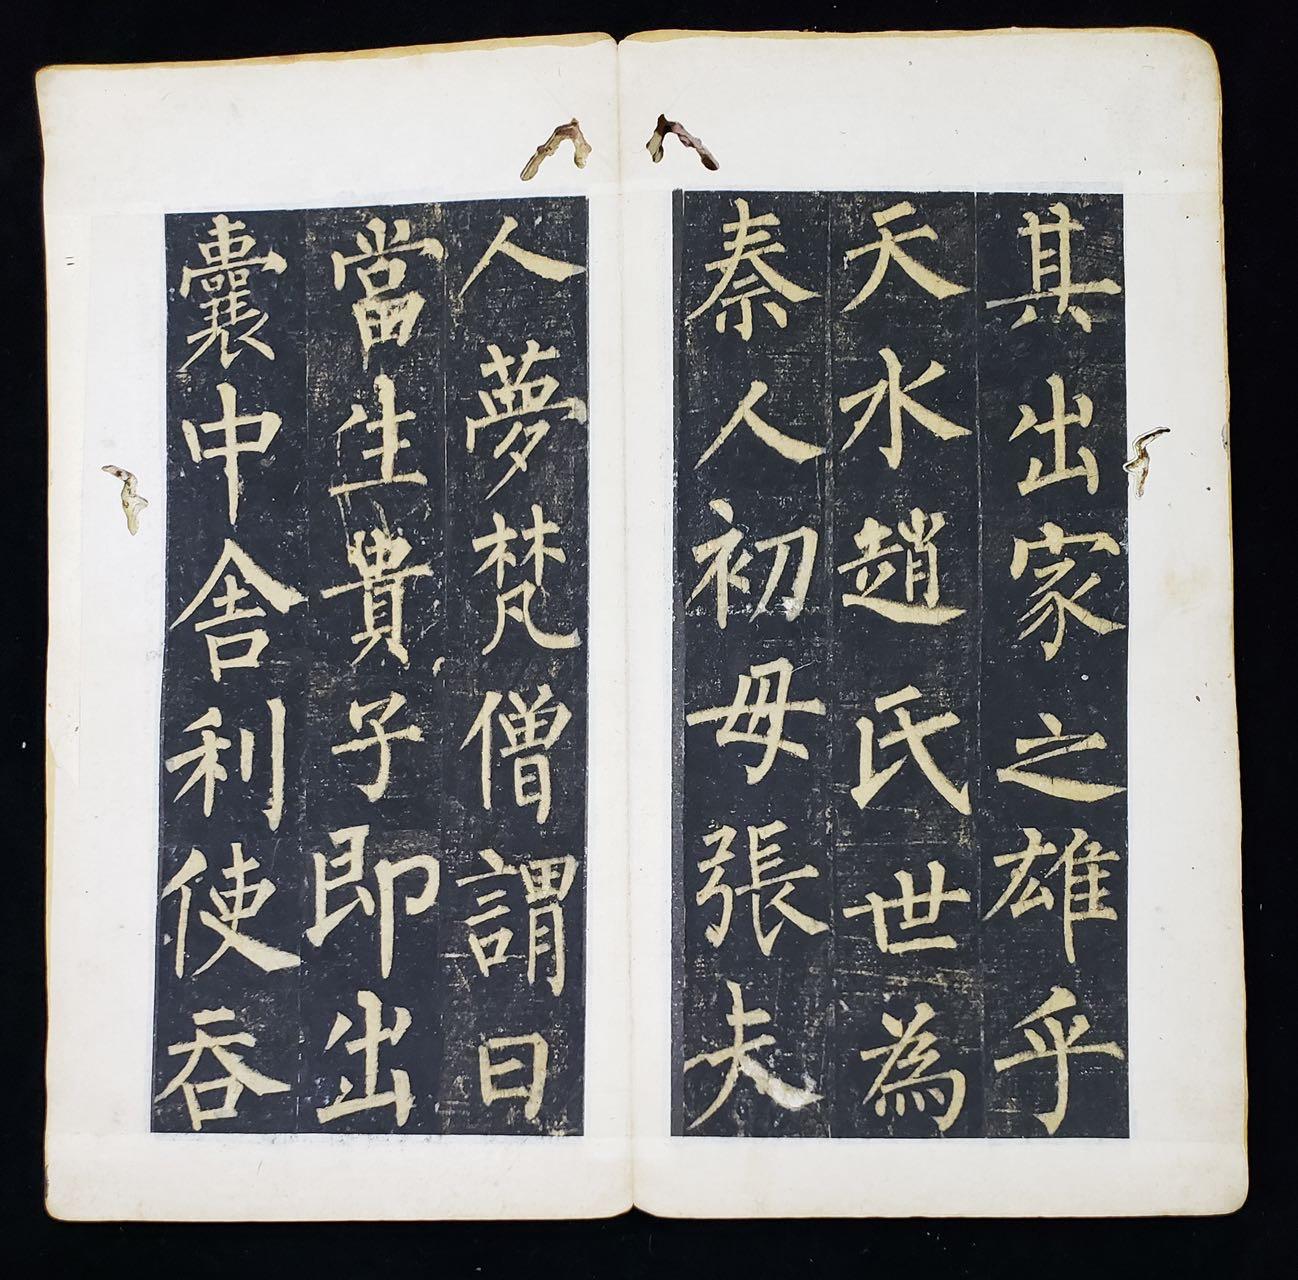 其出家之雄乎
天水趙氏世為
秦人初母張夫
人夢梵僧謂曰
當生貴子即出
囊中舍利使吞